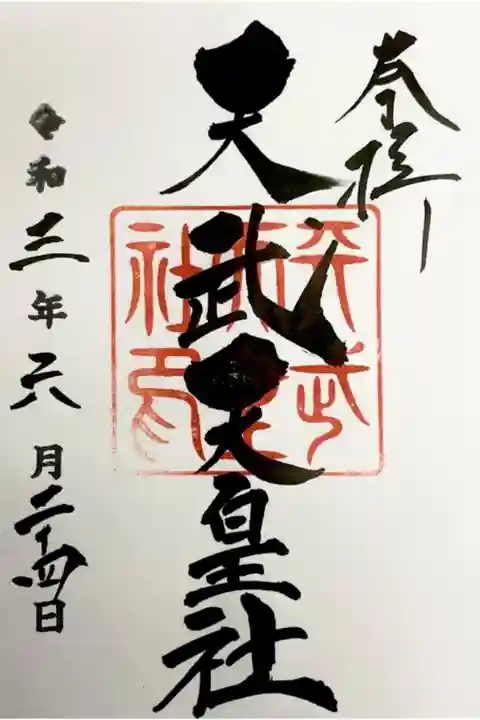 奉拝
天武天皇社
天武
天皇
社印
令和三年六月二十四日